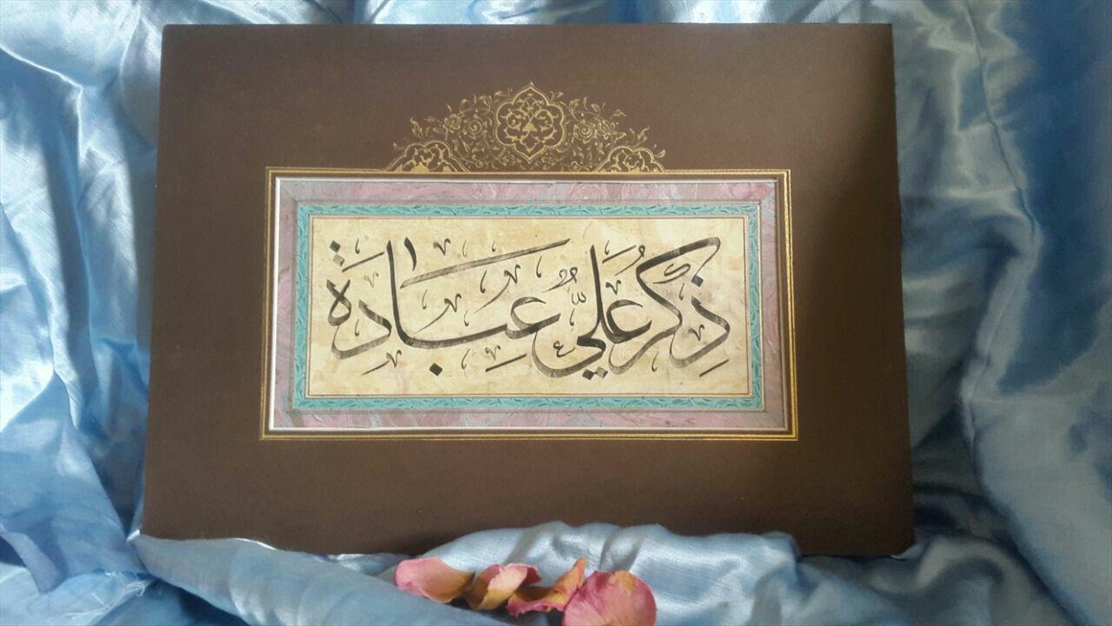 ذِكرُ عَليٍّ عِبُادَةٌ